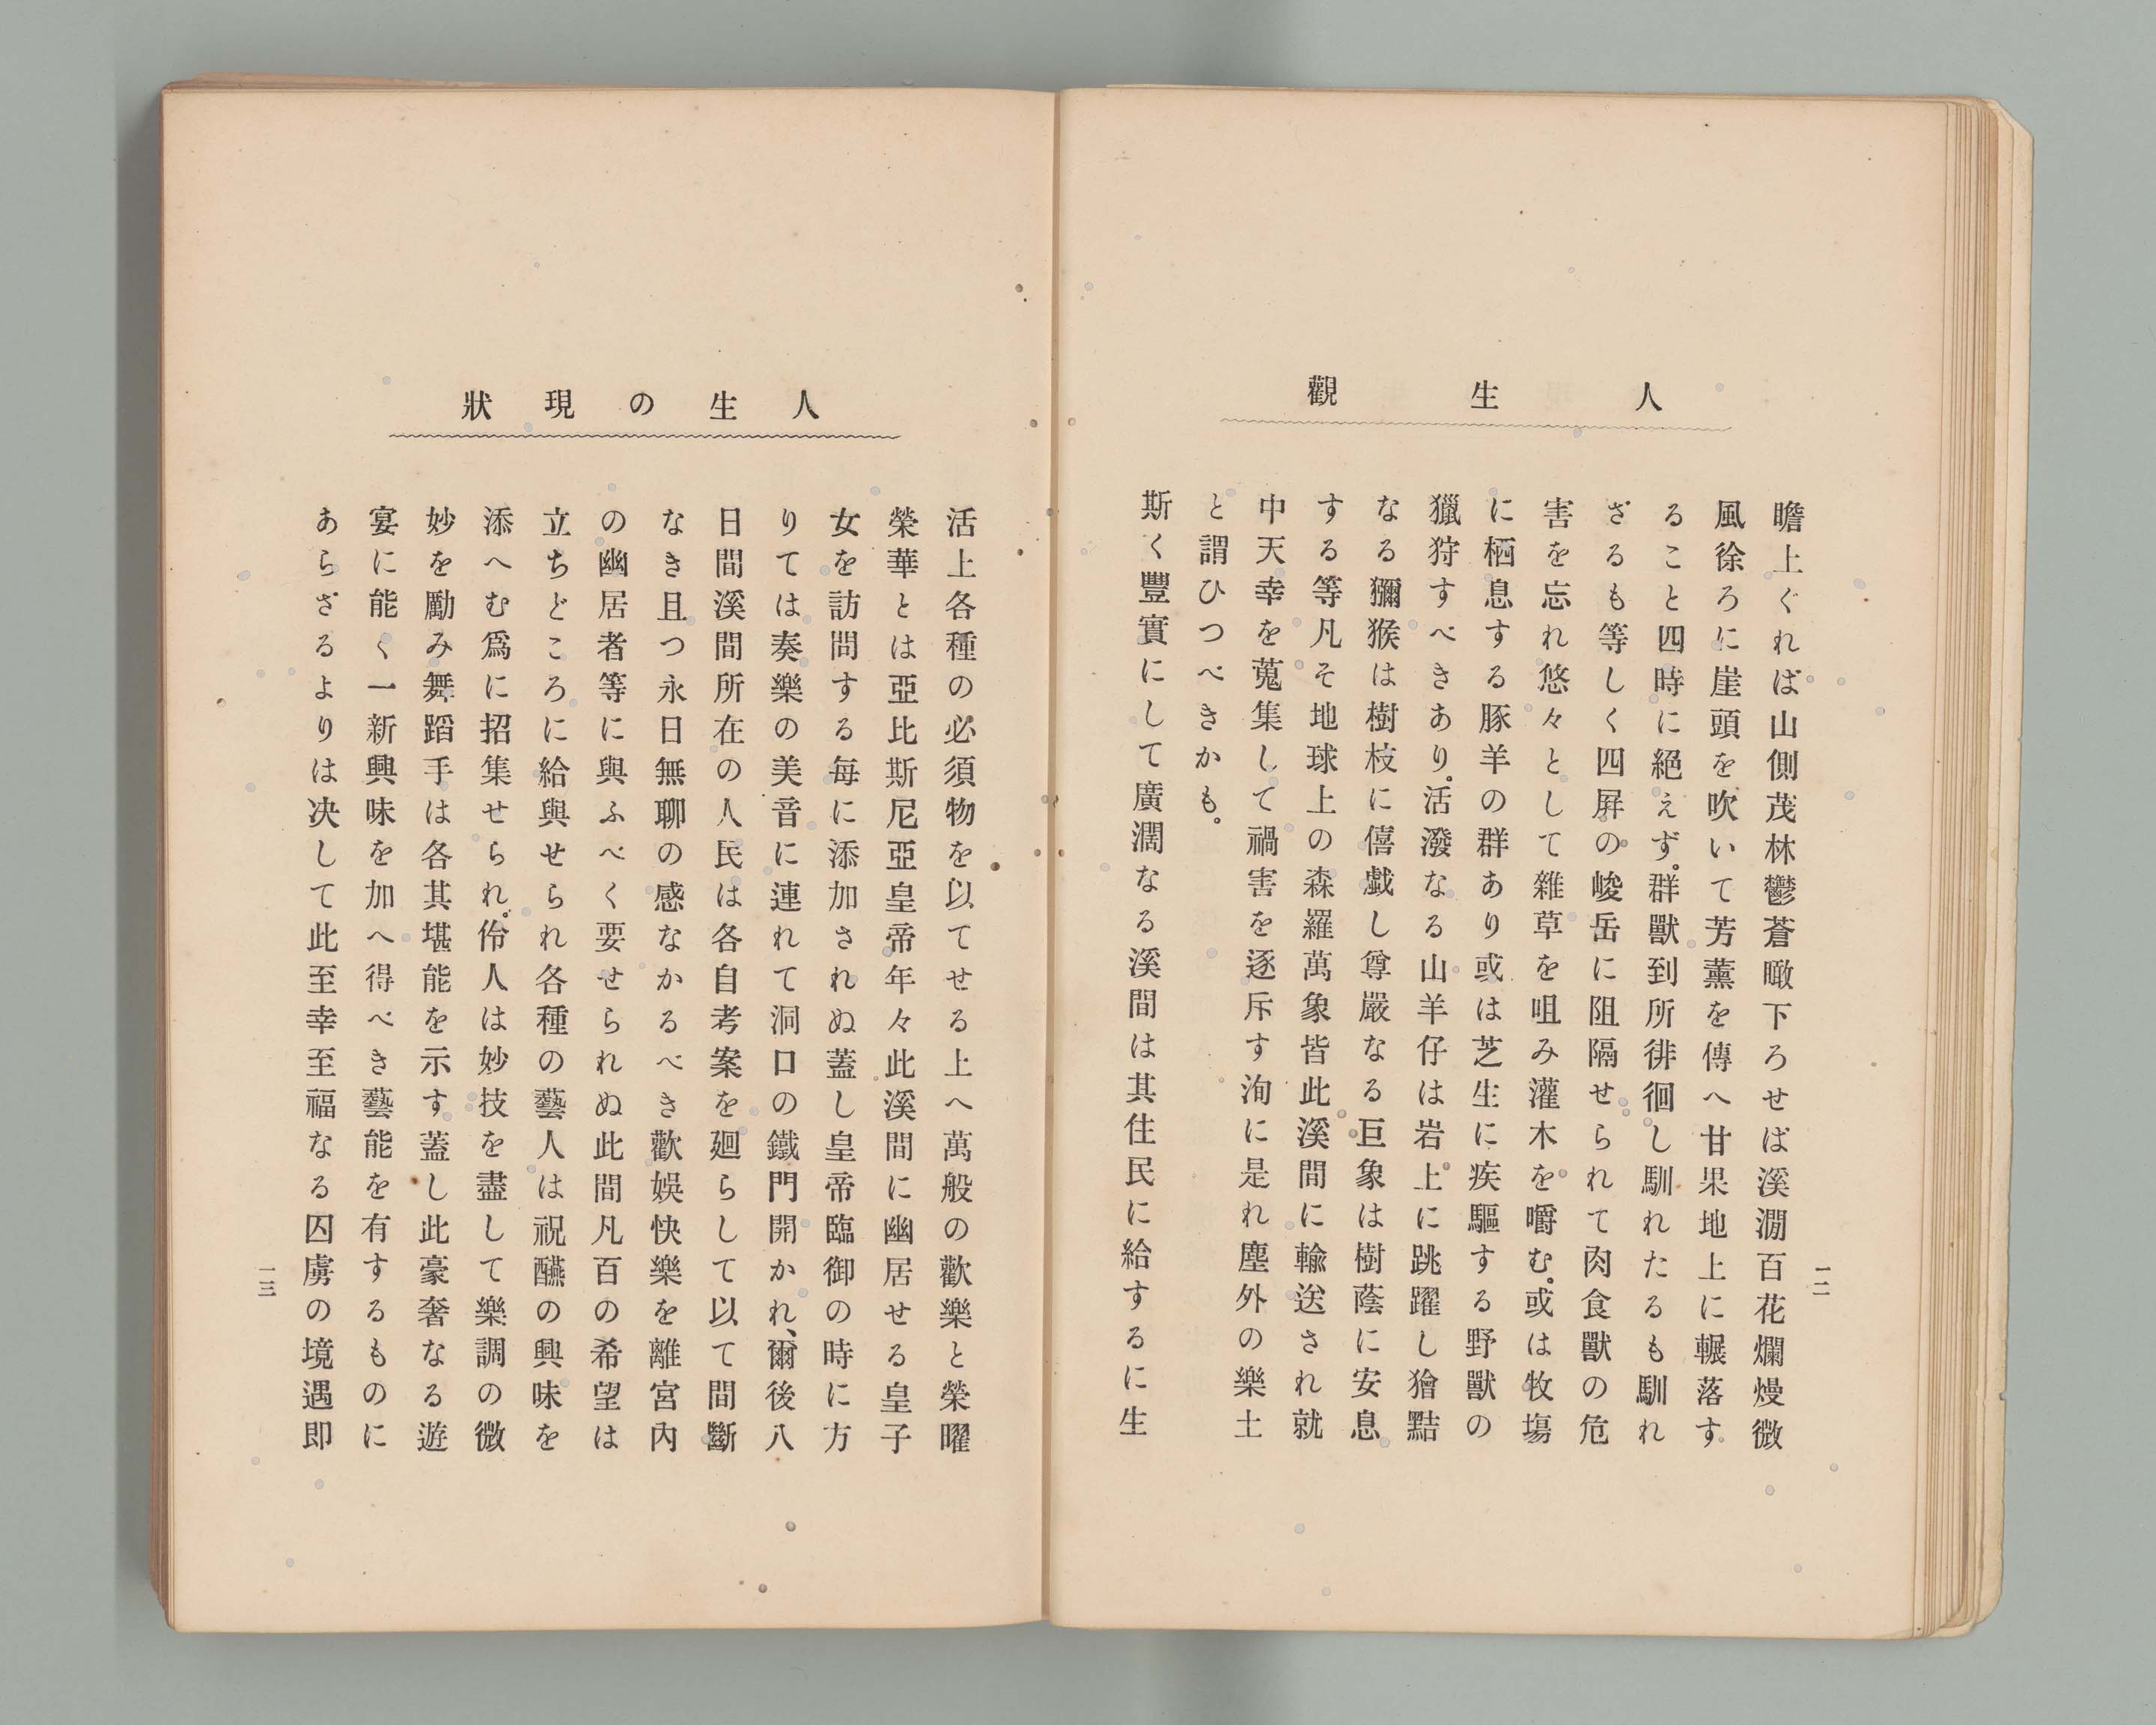 人生觀
瞻上ぐれば山側茂林鬱蒼瞰下ろせば溪澗百花爛熳微
風徐ろに崖頭を吹いて芳薰を傳へ甘果地上に輾落す
ること四時に絕えず。群獸到所徘徊し馴れたるも馴れ
ざるも等しく四屛の峻岳に阻隔せられて肉食獸の危
害を忘れ悠々として雜草を咀み灌木を嚼む。或は牧塲
に栖息する豚羊の群あり或は芝生に疾驅する野獸の
獵狩すべきあり。活潑なる山羊仔は岩上に跳躍し獪黠
なる獼猴は樹枝に僖戱し尊嚴なる巨象は樹蔭に安息
する等凡そ地球上の森羅萬象皆此溪間に輸送され就
中天幸を蒐集して禍害を逐斥す洵に是れ塵外の樂土
と謂ひつべきかも。
斯く豐實にして廣濶なる溪間は其住民に給するに生
一二
人生の現狀
活上各種の必須物を以てせる上へ萬般の歡樂と榮曜
榮華とは亞比斯尼亞皇帝年々此溪間に幽居せる皇子
女を訪問する每に添加されぬ蓋し皇帝臨御の時に方
りては奏樂の美音に連れて洞口の鐵門開かれ、爾後八
日間溪間所在の人民は各自考案を廻らして以て間斷
なき且つ永日無聊の感なかるべき歡娛快樂を離宮內
の幽居者等に與ふべく要せられぬ此間凡百の希望は
立ちどころに給與せられ各種の藝人は祝醼の興味を
添へむ爲に招集せられ。伶人は妙技を盡して樂調の微
妙を勵み舞蹈手は各其堪能を示す蓋し此豪奢なる遊
宴に能く一新興味を加へ得べき藝能を有するものに
あらざるよりは决して此至幸至福なる囚虜の境遇卽
一三